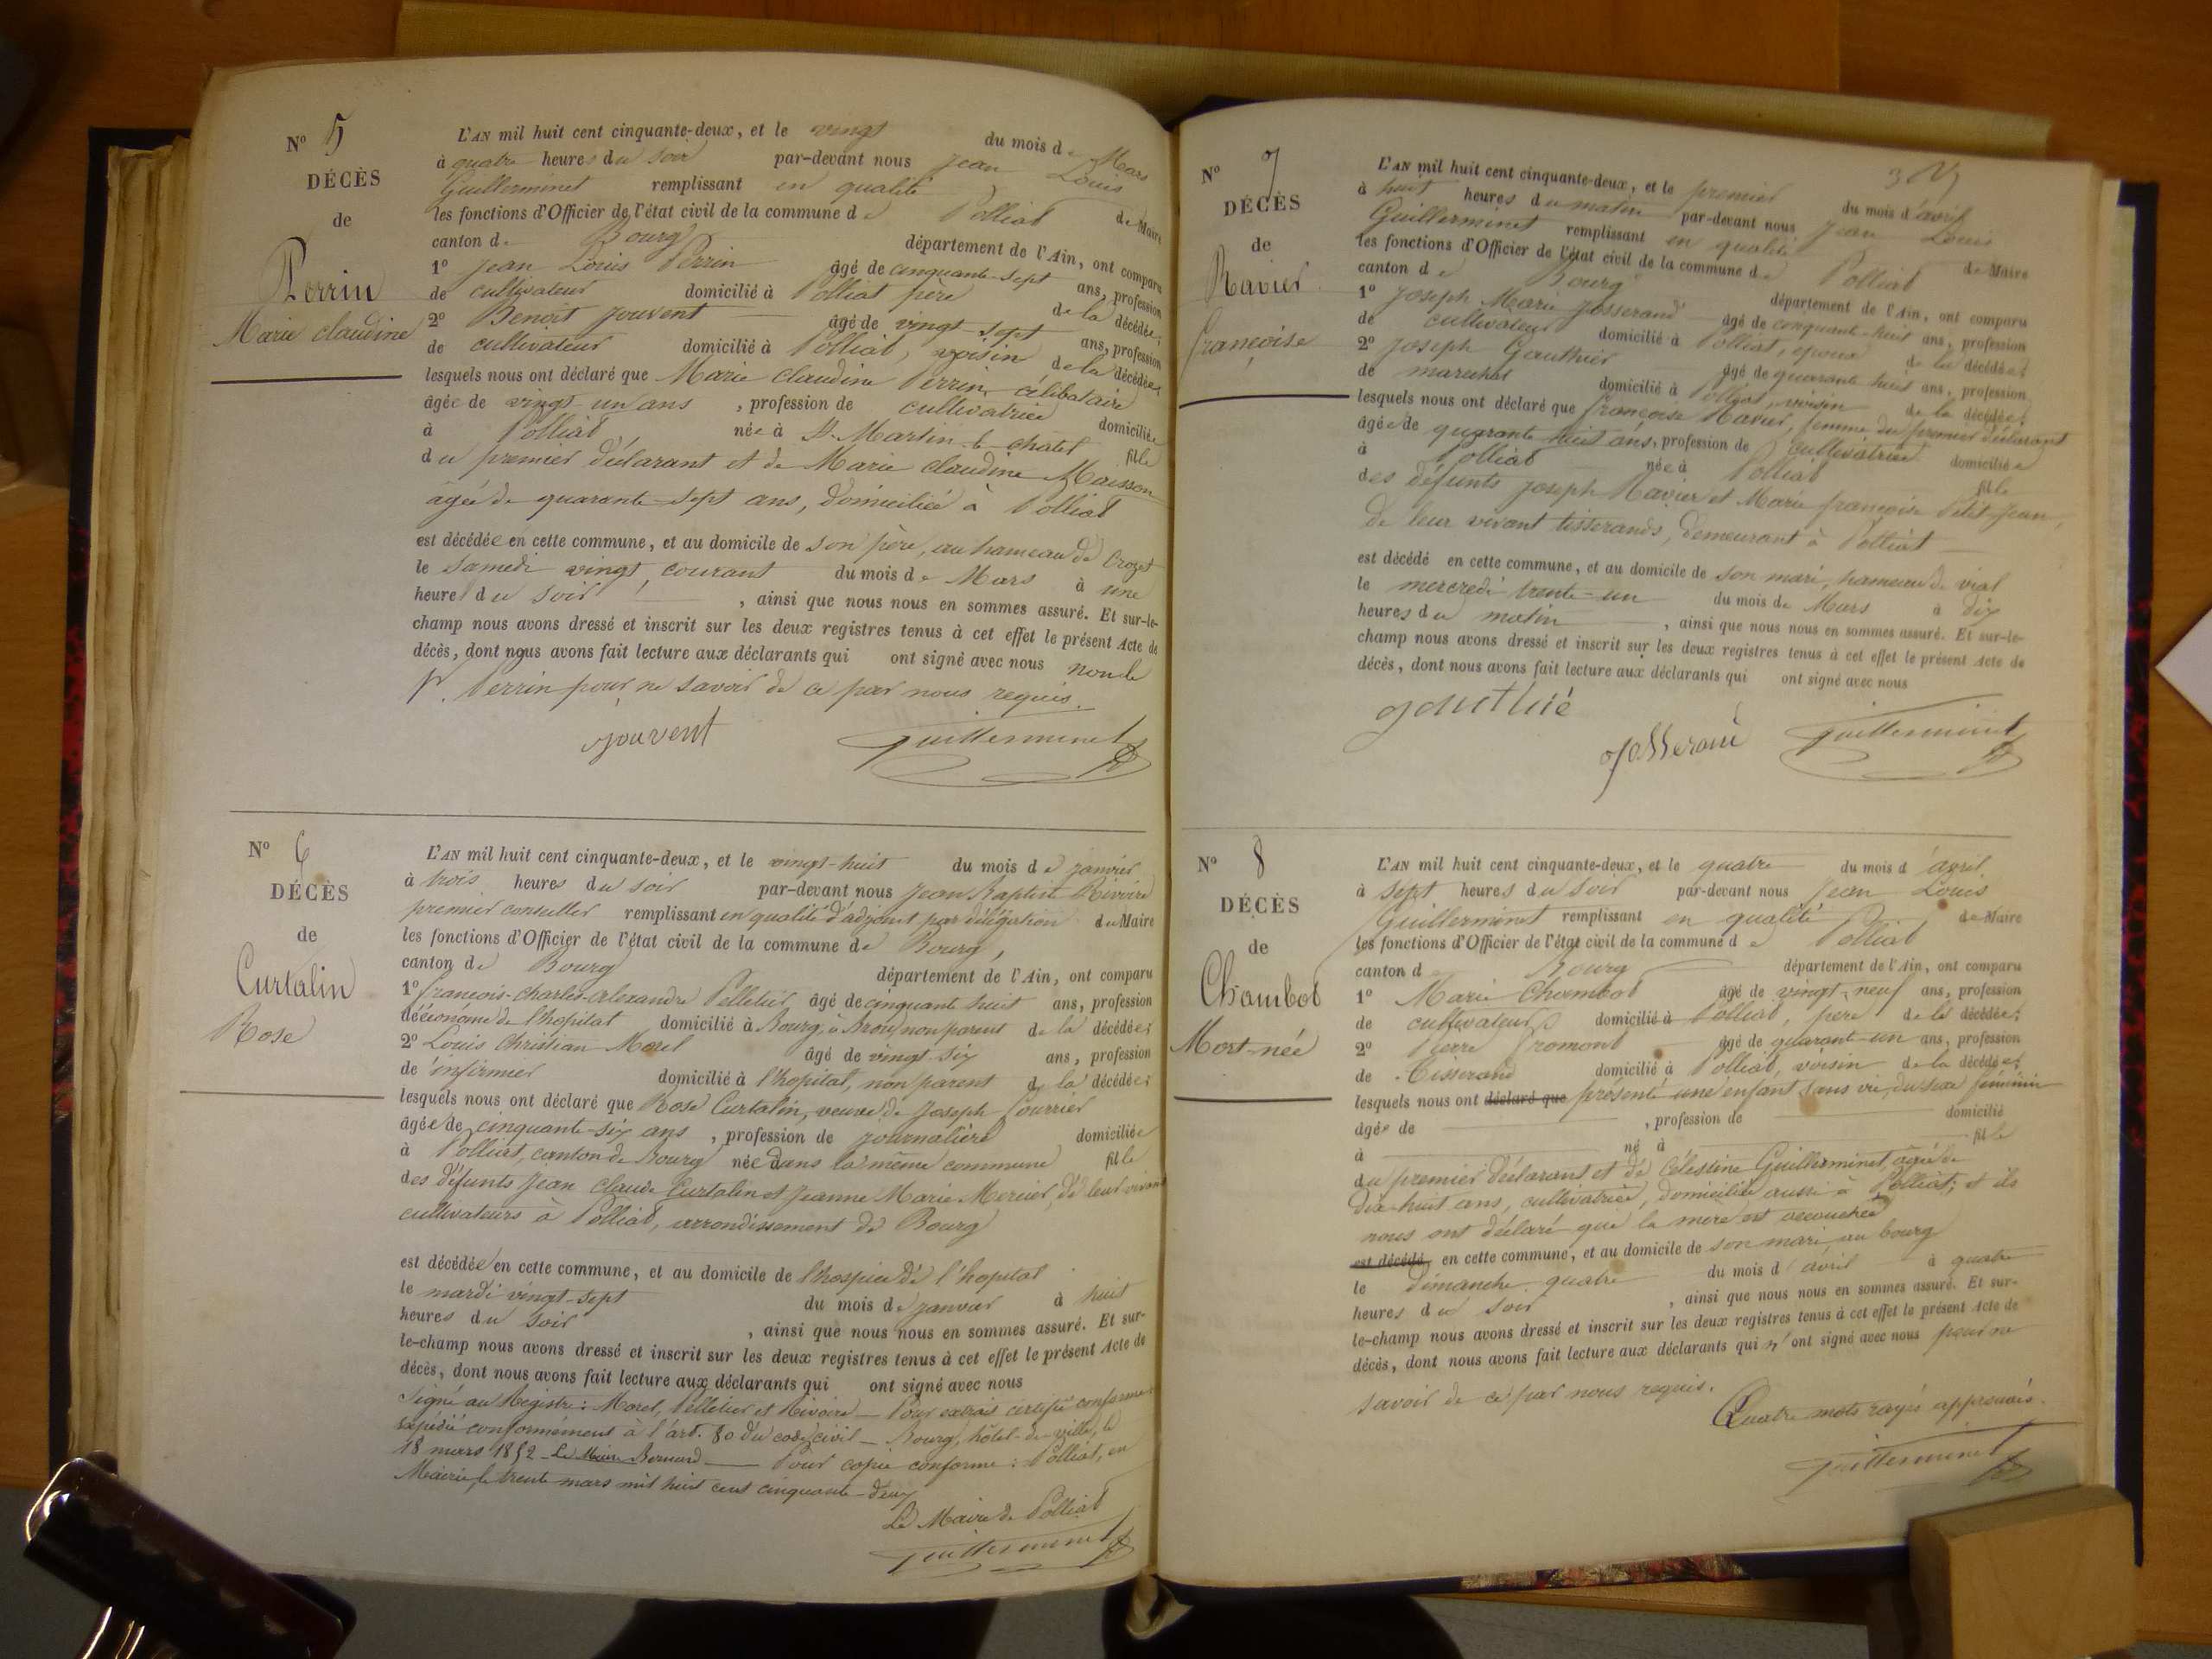 N° 5
DÉCÈS
de
Perrin
Marie claudine
L'AN mil huit cent cinquante-deux, et le vingt du mois de Mars
à quatre heures du soir par-devant nous Jean Louis
Guillerminet remplissant en qualité de Maire
les fonctions d'Officier de l'état civil de la commune de Polliat
canton de Bourg département de l'Ain, ont comparu
1° Jean Louis Perrin âgé de cinquante-sept ans, profession
de cultivateur domicilié à Polliat père de la décédée;
2° Benoit Jouvent âgé de vingt-sept ans, profession
de cultivateur domicilié à Polliat, voisin de la décédée;
lesquels nous ont déclaré que Marie claudine Perrin, célibataire
âgée de vingt-un ans, profession de cultivatrice domiciliée
à Polliat née à St. Martin-le-châtel fille
du premier déclarant et de Marie claudine Maisson
âgée de quarante-sept ans, domiciliée à Polliat
est décédée en cette commune, et au domicile de son père, au hameau de Crozet
le samedi vingt, courant du mois de Mars à une
heure du soir, ainsi que nous nous en sommes assuré. Et sur-le-
champ nous avons dressé et inscrit sur les deux registres tenus à cet effet le présent Acte de
décès, dont nous avons fait lecture aux déclarants qui ont signé avec nous non le
P. Perrin pour ne savoir de ce par nous requis.
Jouvent Guillerminet
N° 6
DÉCÈS
de
Curtalin
Rose
L'AN mil huit cent cinquante-deux, et le vingt-huit du mois de janvier
à trois heures du soir par-devant nous Jean Baptiste Rivoire
premier conseiller remplissant en qualité d'adjoint par délégation du Maire
les fonctions d'Officier de l'état civil de la commune de Bourg,
canton de Bourg département de l'Ain, ont comparu
1° françois-charles-alexandre Pelletier âgé de cinquante huit ans, profession
d'économe de l'hopital domicilié à Bourg, à Brou, non parent de la décédée;
2° Louis Christian Morel âgé de vingt-six ans, profession
de infirmier domicilié à l'hopital, non parent de la décédée;
lesquels nous ont déclaré que Rose Curtalin, veuve de Joseph Fourrier
âgée de cinquante-six ans, profession de journalière domiciliée
à Polliat, canton de Bourg née dans la même commune fille
des défunts Jean claude Curtalin et Jeanne Marie Mercier, de leur vivant
cultivateurs à Polliat, arrondissement de Bourg
est décédée en cette commune, et au domicile de l'hospice de l'hopital
le mardi vingt-sept du mois de janvier à huit
heures du soir, ainsi que nous nous en sommes assuré. Et sur-
le-champ nous avons dressé et inscrit sur les deux registres tenus à cet effet le présent Acte de
décès, dont nous avons fait lecture aux déclarants qui ont signé avec nous
Signé au Registre: Morel, Pelletier et Rivoire — Pour extrait certifié conforme
expédié conformément à l'art. 80 du code civil — Bourg, hôtel-de-ville, le
18 mars 1852 — Le Maire Bernard — Pour copie conforme: Polliat, en
Mairie, le trente mars mil huit cent cinquante-deux
Le Maire de Polliat
Guillerminet
N° 7
DÉCÈS
de
Ravier
françoise
L'AN mil huit cent cinquante-deux, et le premier du mois d'avril
à huit heures du matin par-devant nous Jean Louis
Guillerminet remplissant en qualité de Maire
les fonctions d'Officier de l'état civil de la commune de Polliat
canton de Bourg département de l'Ain, ont comparu
1° Joseph Marie Josserand âgé de cinquante-huit ans, profession
de cultivateur domicilié à Polliat, époux de la décédée;
2° Joseph Gauthier âgé de quarante huit ans, profession
de maréchal domicilié à Polliat, voisin de la décédée;
lesquels nous ont déclaré que françoise Ravier, femme du premier déclarant
âgée de quarante huit ans, profession de cultivatrice domiciliée
à Polliat née à Polliat fille
des défunts Joseph Ravier et Marie françoise Petit-Jean,
de leur vivant tisserands, demeurant à Polliat
est décédé en cette commune, et au domicile de son mari, hameau de vial
le mercredi trente-un du mois de Mars à dix
heures du matin, ainsi que nous nous en sommes assuré. Et sur-le-
champ nous avons dressé et inscrit sur les deux registres tenus à cet effet le présent Acte de
décès, dont nous avons fait lecture aux déclarants qui ont signé avec nous
Josserand Guillerminet
N° 8
DÉCÈS
de
Chambot
Mort-née
L'AN mil huit cent cinquante-deux, et le quatre du mois d'avril
à sept heures du soir par-devant nous Jean Louis
Guillerminet remplissant en qualité de Maire
les fonctions d'Officier de l'état civil de la commune de Polliat
canton d Bourg département de l'Ain, ont comparu
1° Marie Chambot âgé de vingt-neuf ans, profession
de cultivateur domicilié à Polliat, père de la décédée;
2° Pierre Promont âgé de quarante-un ans, profession
de tisserand domicilié à Polliat, voisin de la décédée;
lesquels nous ont déclaré que présenté une enfant sans vie, du sexe féminin
âgée de , profession de domicilié
à né à fille
du premier déclarant et de Célestine Guillerminet, âgée de
dix-huit ans, cultivatrice, domiciliée aussi à Polliat; et ils
nous ont déclaré que la mère est accouchée
est décédé en cette commune, et au domicile de son mari, au bourg
le dimanche quatre du mois d'avril à quatre
heures du soir, ainsi que nous nous en sommes assuré. Et sur-
le-champ nous avons dressé et inscrit sur les deux registres tenus à cet effet le présent Acte de
décès, dont nous avons fait lecture aux déclarants qui n'ont signé avec nous pour ne
savoir de ce par nous requis.
Quatre mots rayés approuvés.
Guillerminet